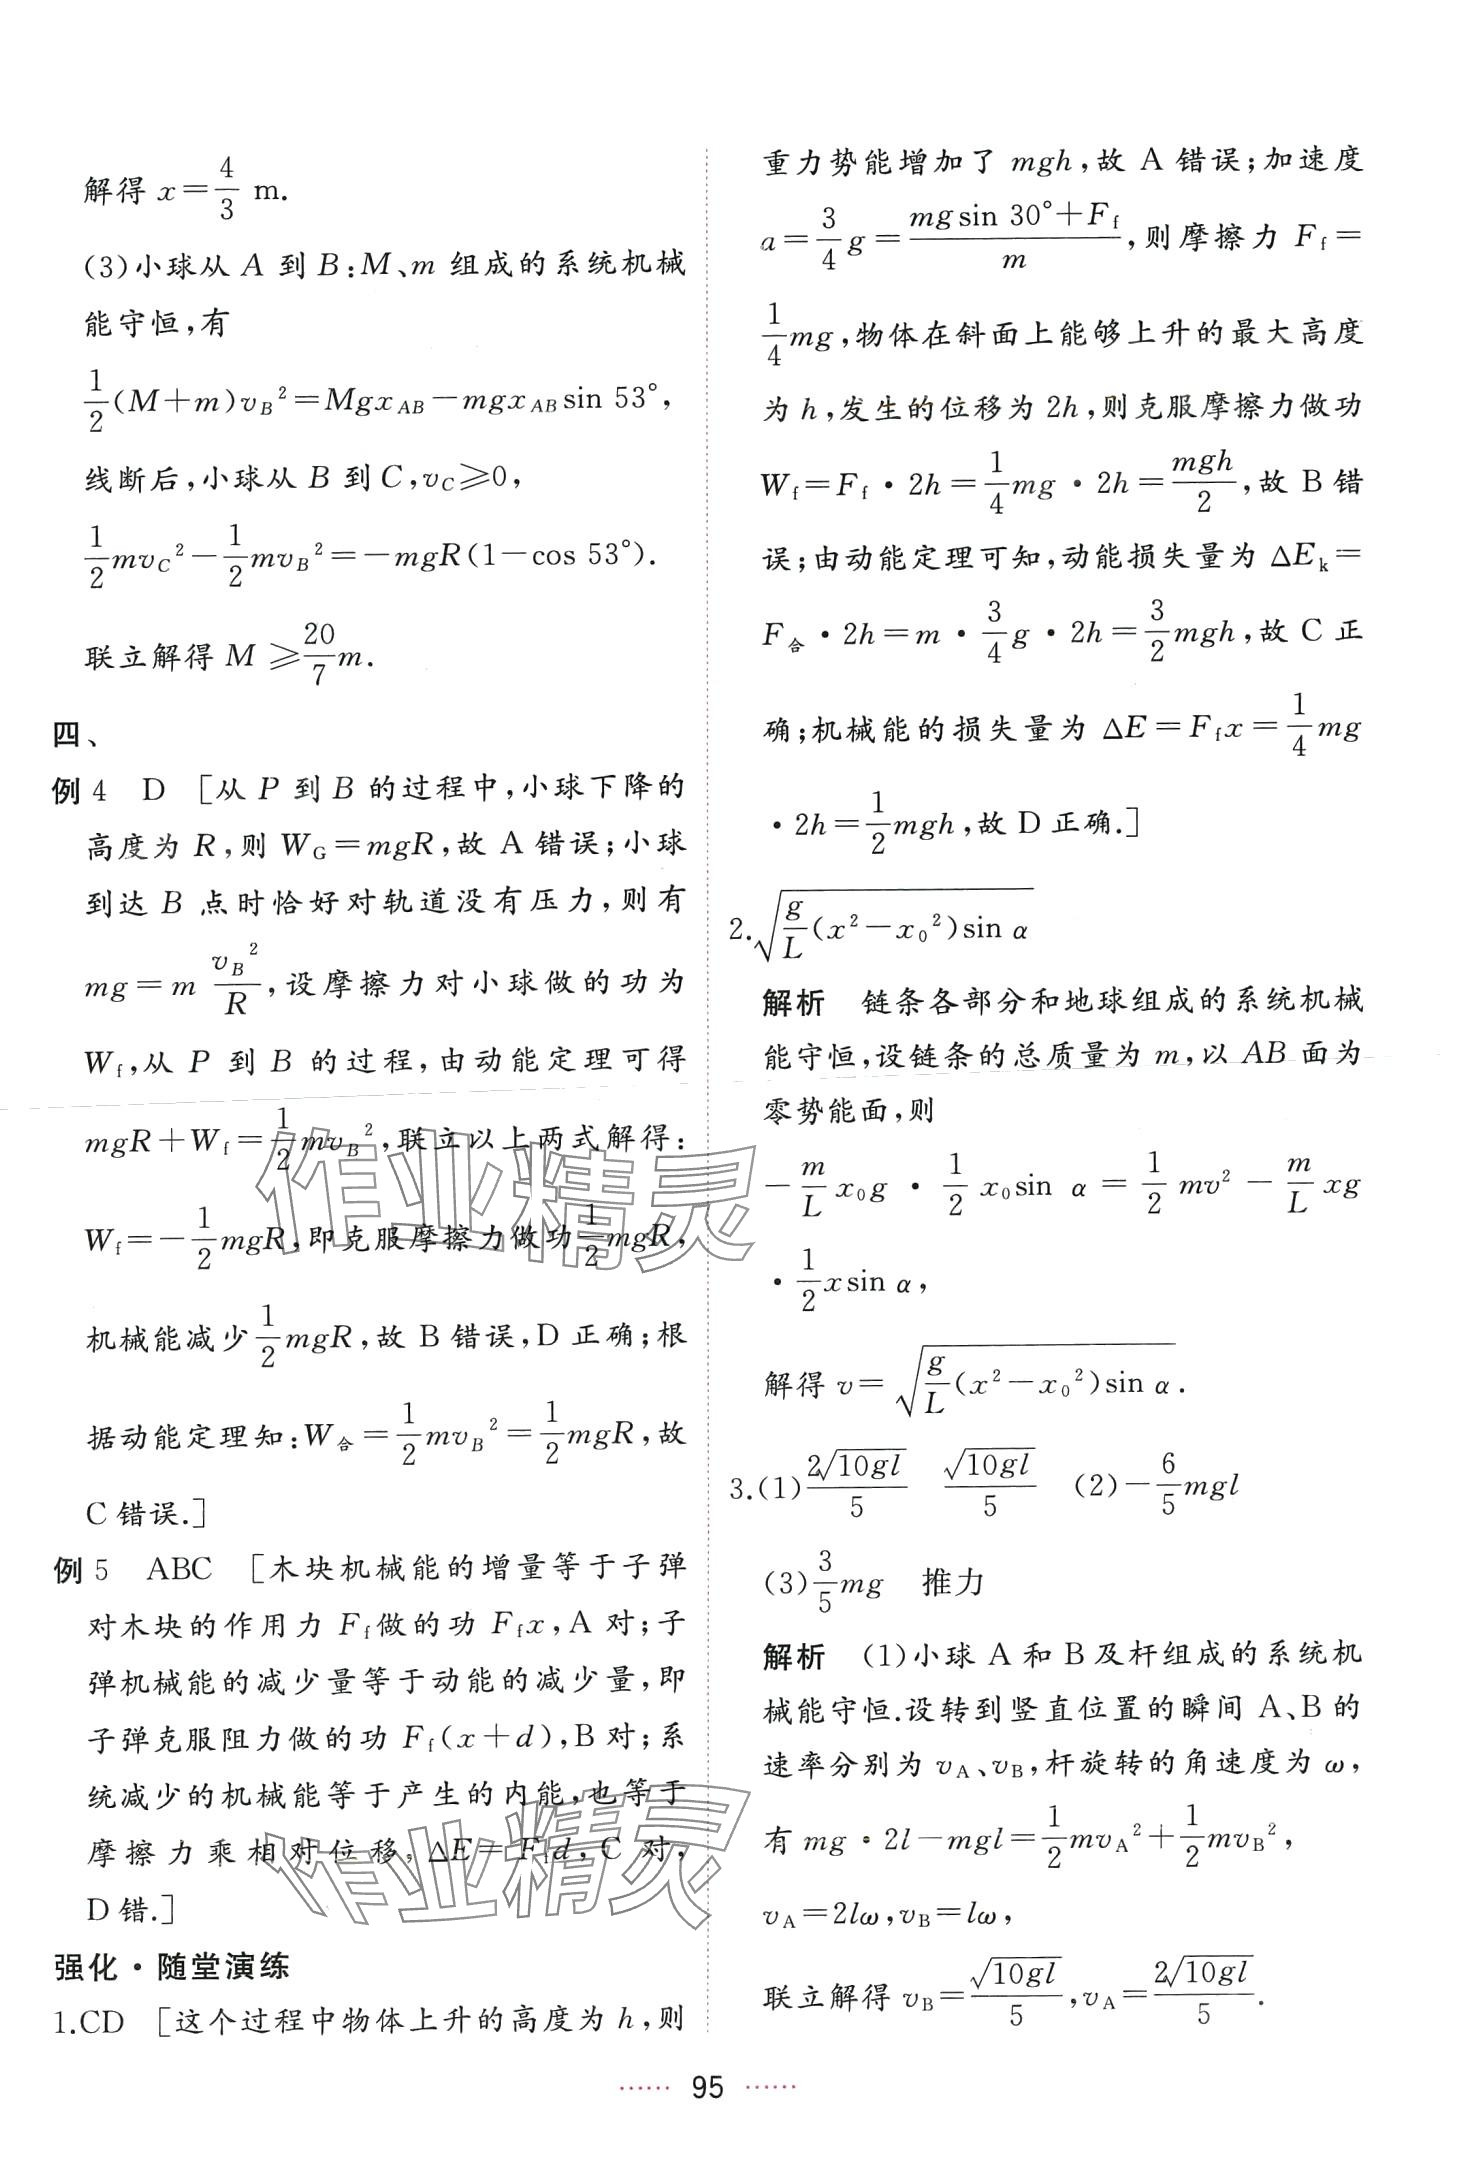 解得 x=4/3 m.
(3)小球从 A 到 B:M、m 组成的系统机械
能守恒,有
1/2(M+m)v_B²=Mgx_AB-mgx_AB sin 53°,
线断后,小球从 B 到 C,v_C≥0,
1/2mv_C²-1/2mv_B²=-mgR(1-cos 53°).
联立解得 M≥20/7m.
四、
例4 D [从 P 到 B 的过程中,小球下降的
高度为 R,则 W_G=mgR,故 A 错误;小球
到达 B 点时恰好对轨道没有压力,则有
mg=m v_B²/R,设摩擦力对小球做的功为
W_f,从 P 到 B 的过程,由动能定理可得
mgR+W_f=1/2mv_B²,联立以上两式解得:
W_f=-1/2mgR,即克服摩擦力做功1/2mgR,
机械能减少1/2mgR,故 B 错误,D 正确;根
据动能定理知:W_合=1/2mv_B²=1/2mgR,故
C 错误.]
例5 ABC [木块机械能的增量等于子弹
对木块的作用力 F_f做的功 F_f x,A 对;子
弹机械能的减少量等于动能的减少量,即
子弹克服阻力做的功 F_f(x+d),B 对;系
统减少的机械能等于产生的内能,也等于
摩擦力乘相对位移,ΔE=F_f d,C 对,
D 错.]
强化·随堂演练
1.CD [这个过程中物体上升的高度为 h,则
重力势能增加了 mgh,故 A 错误;加速度
a=3/4g=(mgsin 30°+F_f)/m,则摩擦力 F_f=
1/4mg,物体在斜面上能够上升的最大高度
为 h,发生的位移为 2h,则克服摩擦力做功
W_f=F_f·2h=1/4mg·2h=mgh/2,故 B 错
误;由动能定理可知,动能损失量为 ΔE_k=
F_合·2h=m·3/4g·2h=3/2mgh,故 C 正
确;机械能的损失量为 ΔE=F_f x=1/4mg
·2h=1/2mgh,故 D 正确.]
2.√(g/L(x²-x₀²)sin α)
解析 链条各部分和地球组成的系统机械
能守恒,设链条的总质量为 m,以 AB 面为
零势能面,则
-m/L x₀g·1/2 x₀sin α=1/2mv²-m/L xg
·1/2xsin α,
解得 v=√(g/L(x²-x₀²)sin α).
3.(1)2√10gl/5 √10gl/5 (2)-6/5mgl
(3)3/5mg 推力
解析 (1)小球 A 和 B 及杆组成的系统机
械能守恒.设转到竖直位置的瞬间 A、B 的
速率分别为 v_A、v_B,杆旋转的角速度为 ω,
有 mg·2l-mgl=1/2mv_A²+1/2mv_B²,
v_A=2lω,v_B=lω,
联立解得 v_B=√10gl/5,v_A=2√10gl/5.
95
作业精灵
作业精灵